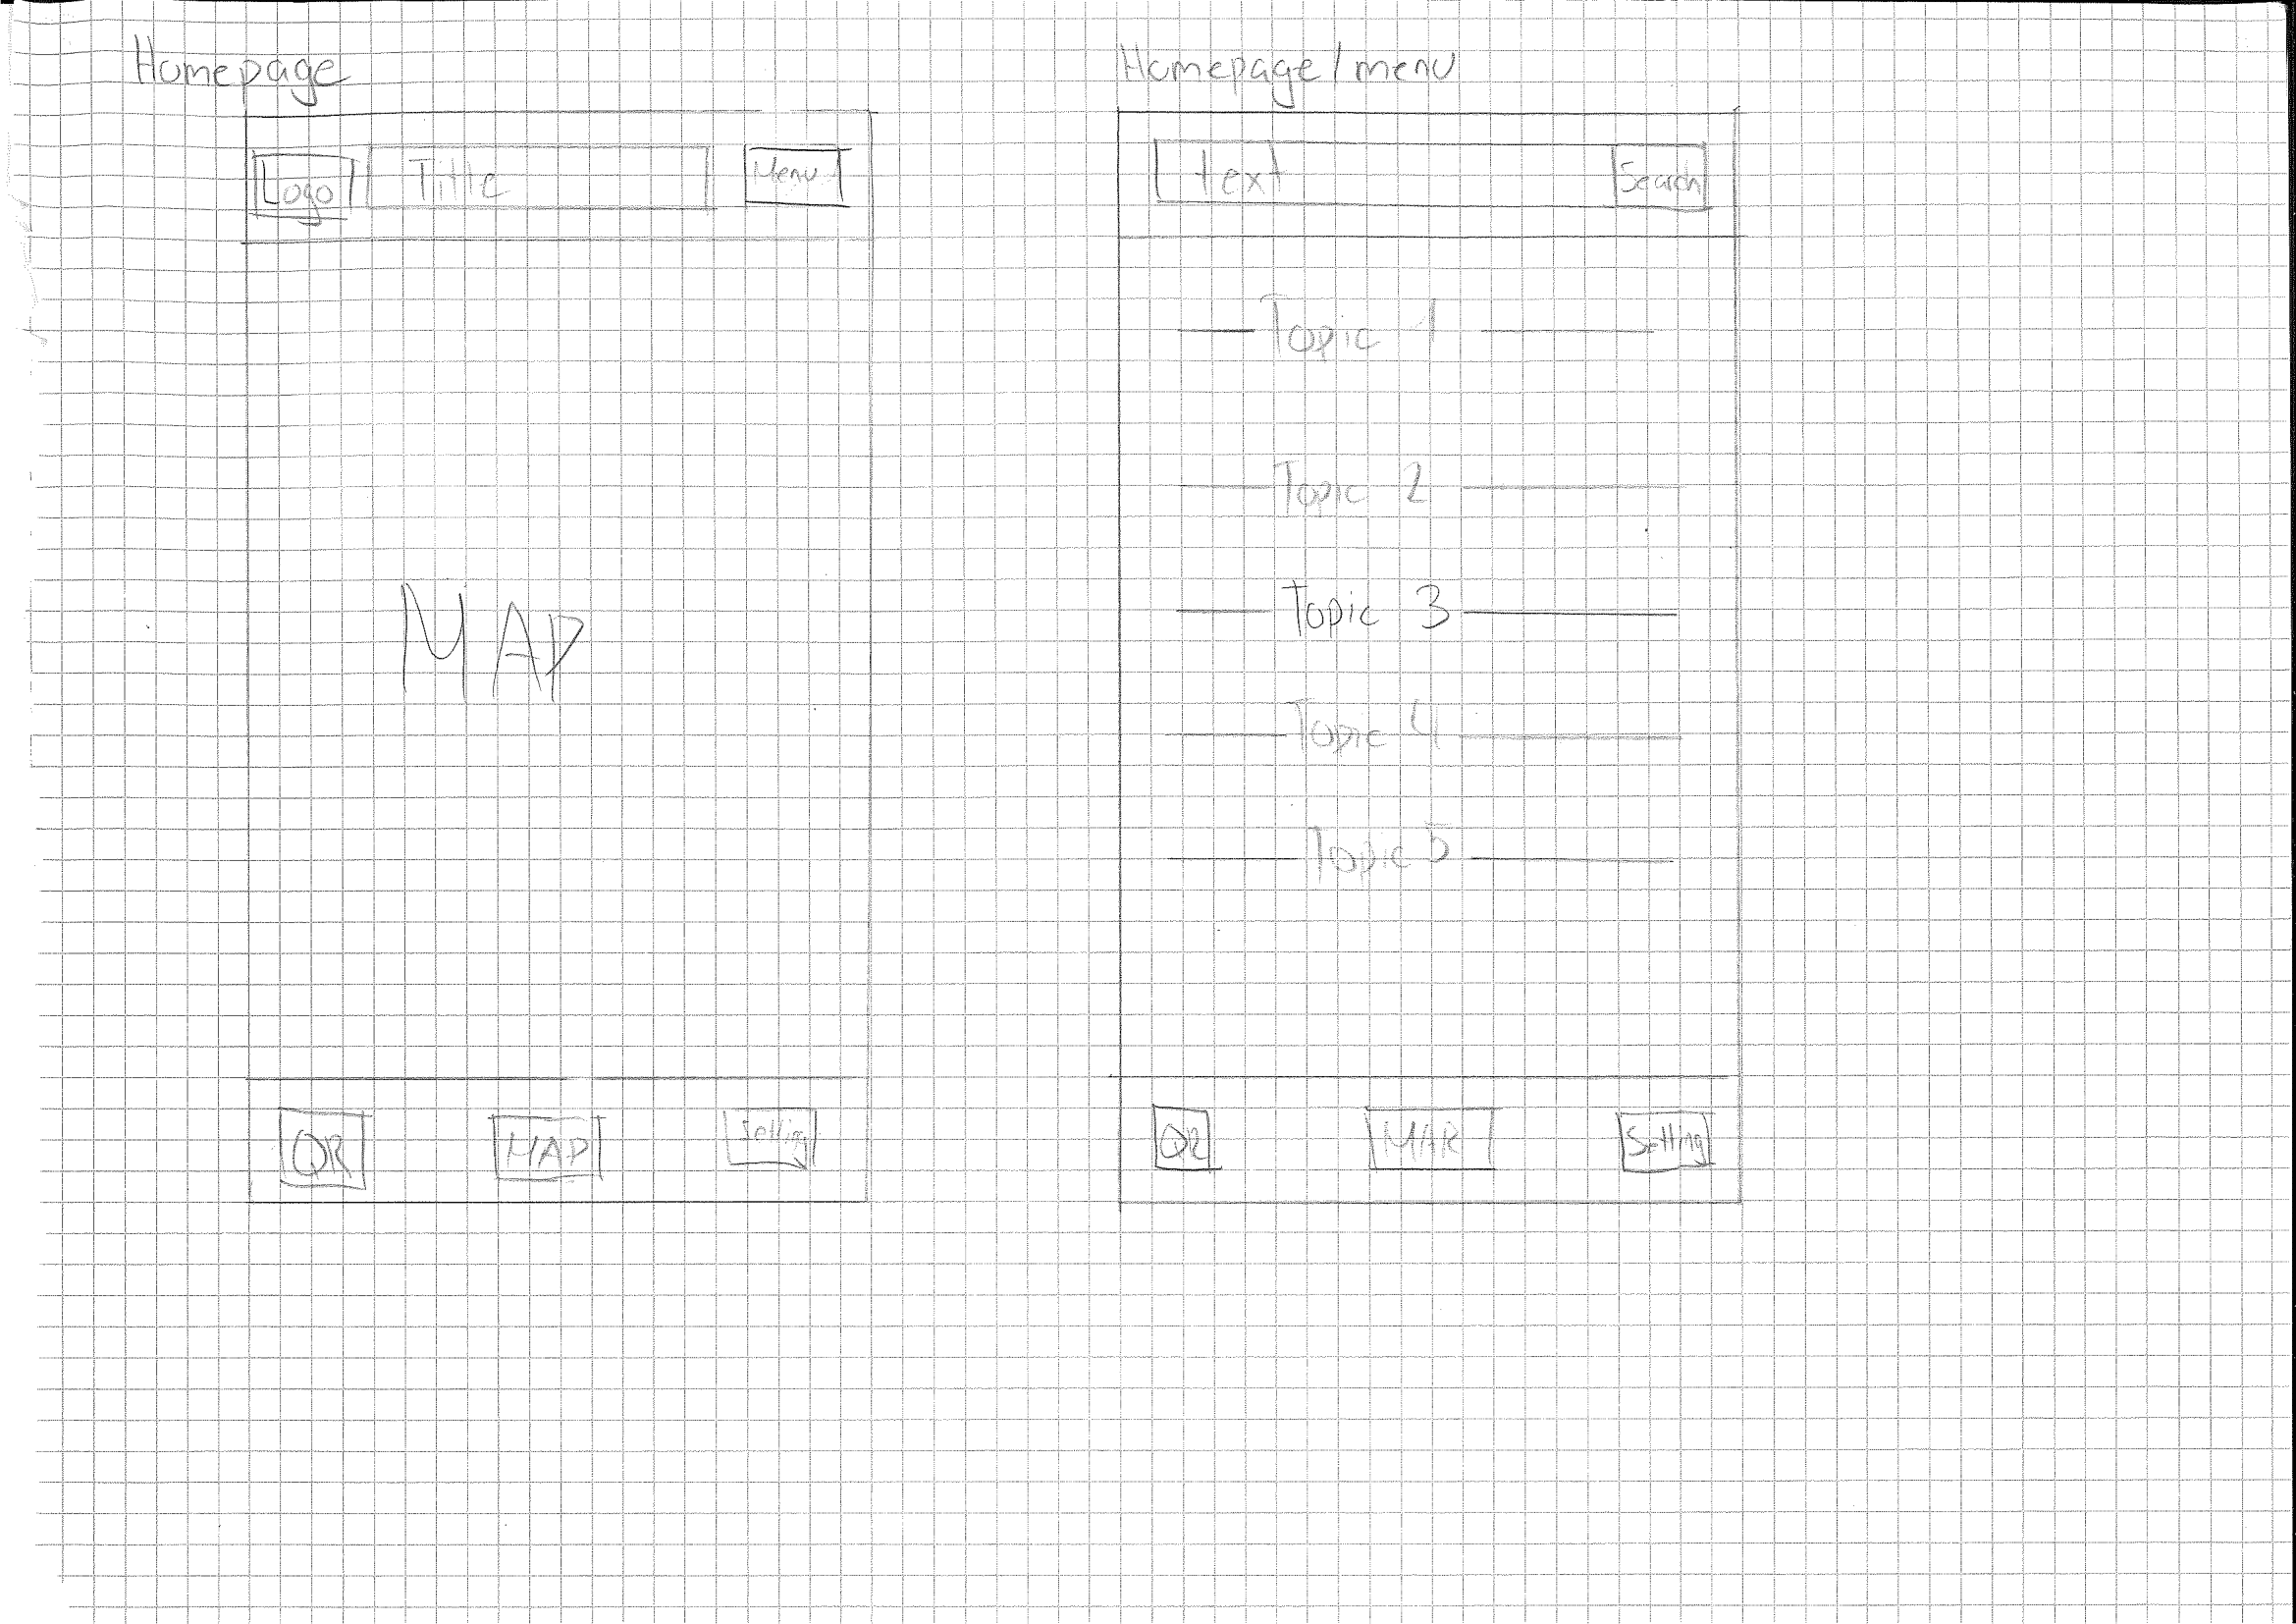 Homepage
Logo Title Menu
MAP
QR MAP Setting
Homepage/menu
text Search
Topic 1
Topic 2
Topic 3
Topic 4
Topic 5
QR MAP Setting